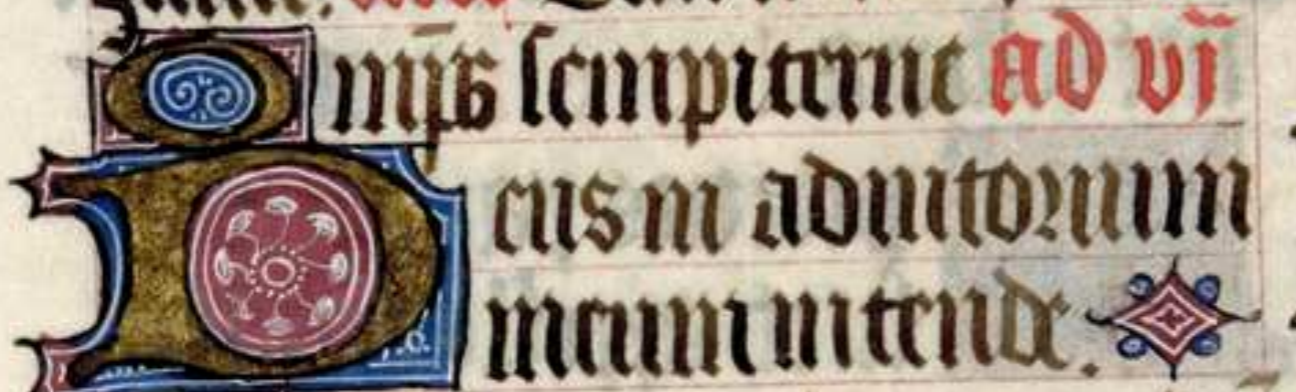 Omp̅s sempiterne ad vi̅
Deus in adiutorium
meum intende.